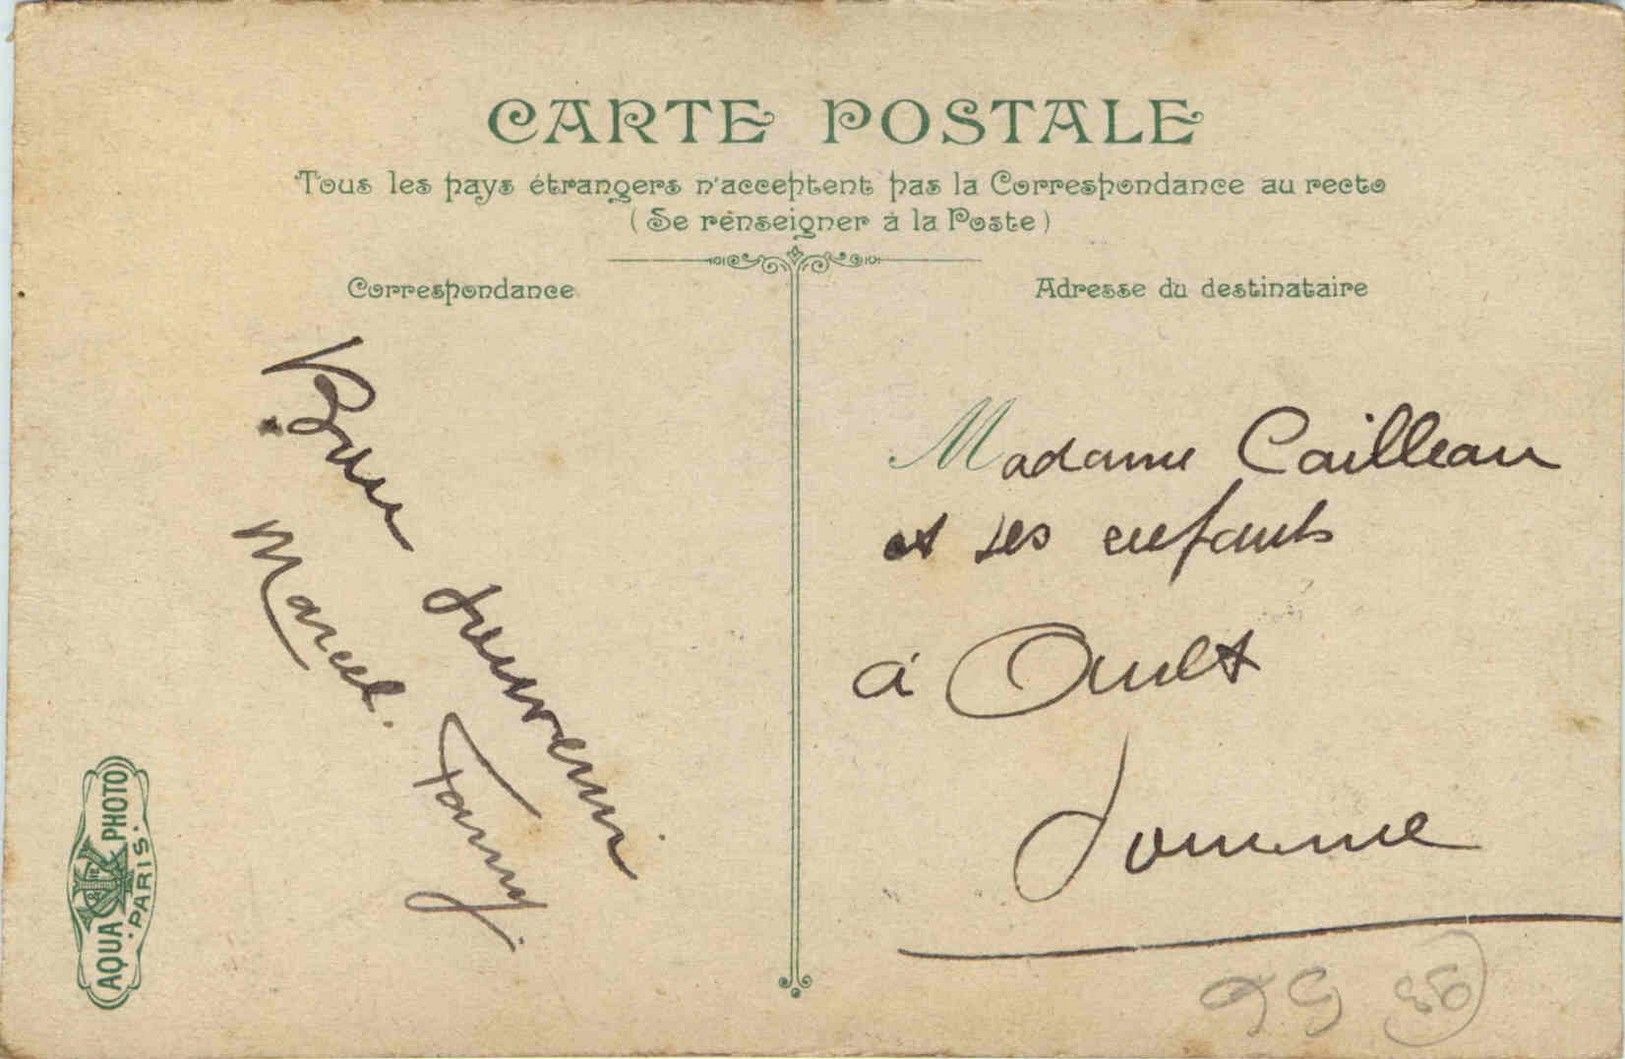 CARTE POSTALE
Tous les pays étrangers n'acceptent pas la Correspondance au recto
(Se rénseigner à la Poste)
Correspondance
Adresse du destinataire
Bon souvenir
Marcel. Fanny.
Madame Cailleau
et ses enfants
à Ault
Somme
AQUA PHOTO
PARIS
99